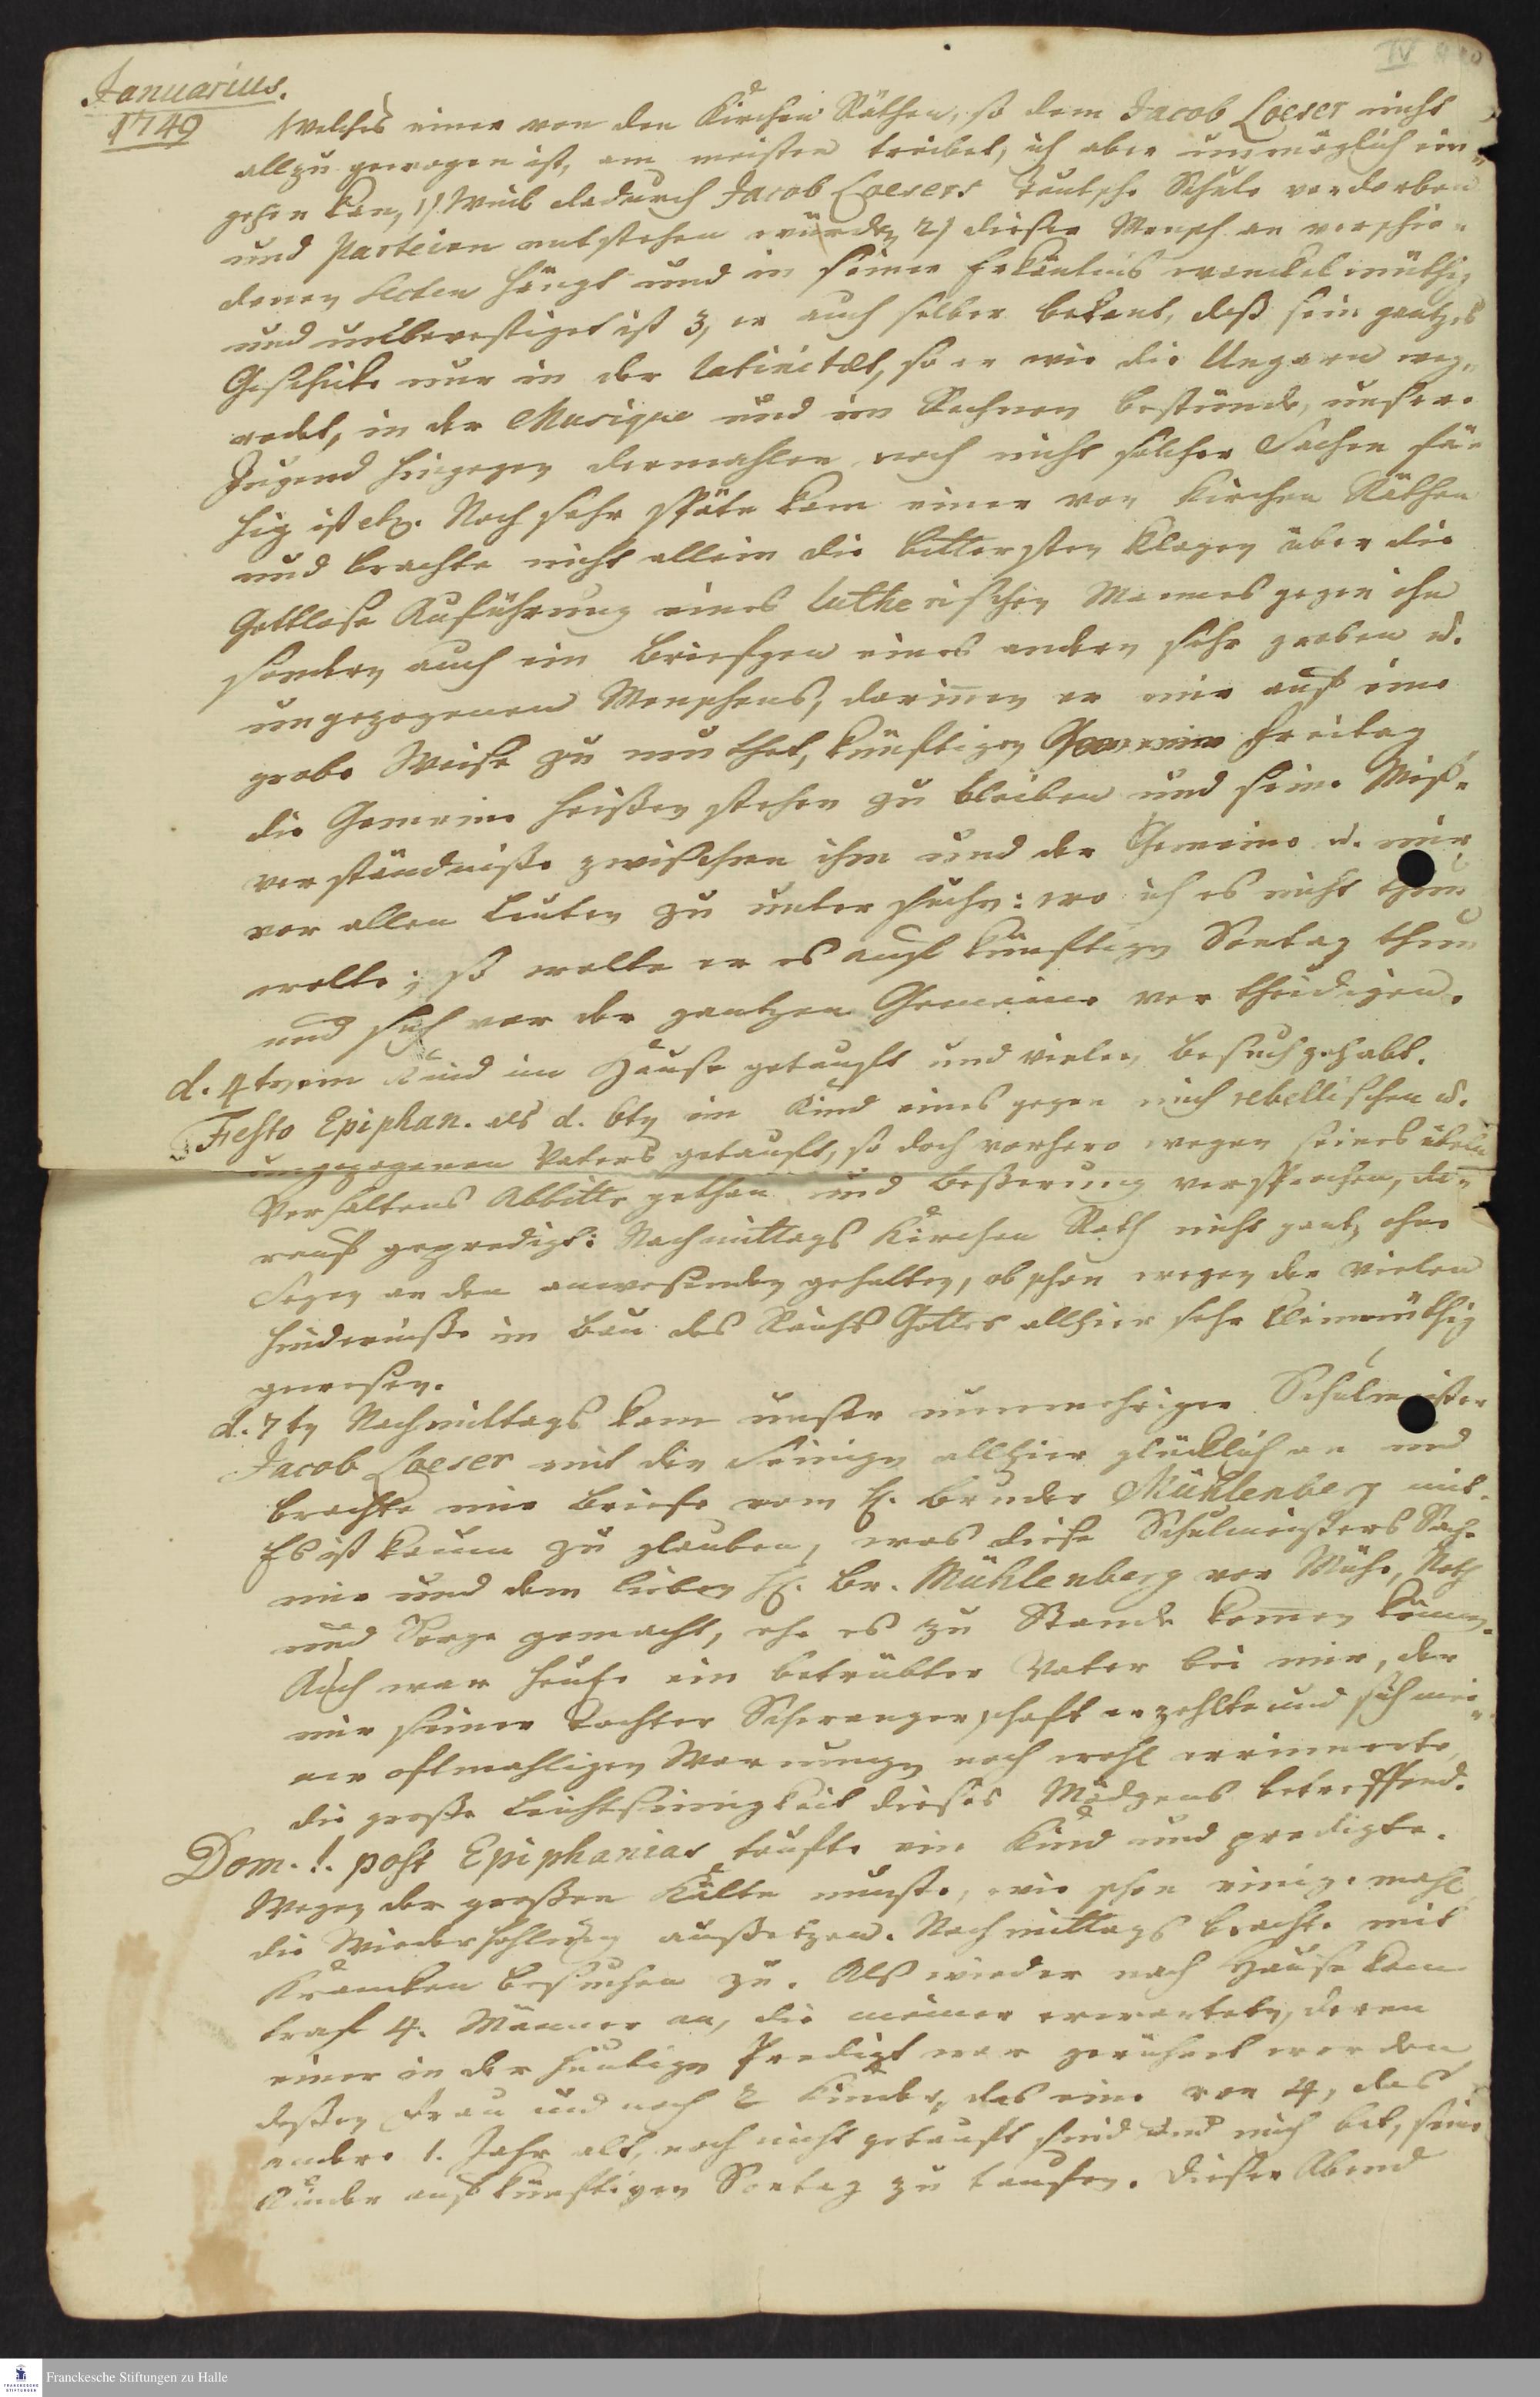 Januarius.
1749
Welches einer von den Kirchen Räthen, so dem Jacob Loeser nicht
allzu gewogen ist, am meisten treibet, ich aber unmöglich ein-
gehen kan, 1) Weil dadurch Jacob Loesers teutsche Schule verdorben
und Parteien entstehen würden, 2) dieser Mensch an verschie-
denen Secten hängt und in seiner Erkäntnis wanckelmüthig
und unbevestiget ist 3, er auch selber bekent, daß sein gantzes
Geschicke nur in der Latinitæt, so er wie die Ungarn weg-
redet, in der Musique und im Rechnen bestünde, unsere
Jugend hingegen dermahlen noch nicht solcher Sachen fä-
hig ist etc. Noch sehr späte kam einer von Kirchen Räthen
und brachte nicht allein die bittersten Klagen über die
Gottlose Aufführung eines Lutherischen Mannes gegen ihn
sondern auch ein Briefgen eines andern sehr groben u.
ungezogenen Menschens, darinnen er mir auf eine
grobe Weise zu muthet, künftigen Freitag
die Gemeine heißen stehen zu bleiben und seine Miß-
verständniße zwischen ihm und der Gemeine u. mir
vor allen Leuten zu untersuchen: wo ich es nicht thun
wolte; so wolte er es auf künftigen Sontag thun
und sich vor der gantzen Gemeine vertheidigen.
d. 4ten ein Kind im Hause getauft und vielen Besuch gehabt.
Festo Epiphan. als d. 6ten ein Kind eines gegen mich rebellischen u.
ungezogenen Vaters getauft, so doch vorhero wegen seines übeln
Verhaltens Abbitte gethan und Beßerung versprochen, da-
rauf geprediget: Nachmittags Kirchen Rath nicht gantz ohne
Segen an den anwesenden gehalten, obschon wegen der vielen
Hinderniße im Bau des Reichs Gottes allhier sehr kleinmüthig
gewesen.
d. 7ten Nachmittags kam unser nunmehriger Schulmeister
Jacob Loeser mit den Seinigen allhier glücklich an und
brachte mir Briefe vom H. Bruder Mühlenberg mit.
Es ist kaum zu glauben, was diese Schulmeisters Sache
mir und dem lieben H. Br. Mühlenberg vor Mühe, Noth
und Sorge gemacht, ehe es zu Stande kommen können.
Auch war heute ein betrübter Vater bei mir, der
mir seiner Tochter Schwangerschaft erzehlte und sich mei-
ner oftmahligen Warnungen noch wohl errinnerte,
die große Leichtsinnigkeit dieses Mädgens betreffend.
Dom. 1. post Epiphanias taufte ein Kind und predigte.
Wegen der großen Kälte muste, wie schon einige mahl
die Wiederhohlung außsetzen. Nachmittags brachte mit
Krancken besuchen zu. Als wieder nach Hause kam
traf 4. Männer an, die meiner erwarteten, deren
einer in der heutigen Predigt war gerühret worden
deßen Frau und noch 2 Kinder, das eine von 4, das
andere 1. Jahr alt, noch nicht getauft sind und mich bat, seine
Kinder auf künftigen Sontag zu taufen. Diesen Abend
Franckesche Stiftungen zu Halle